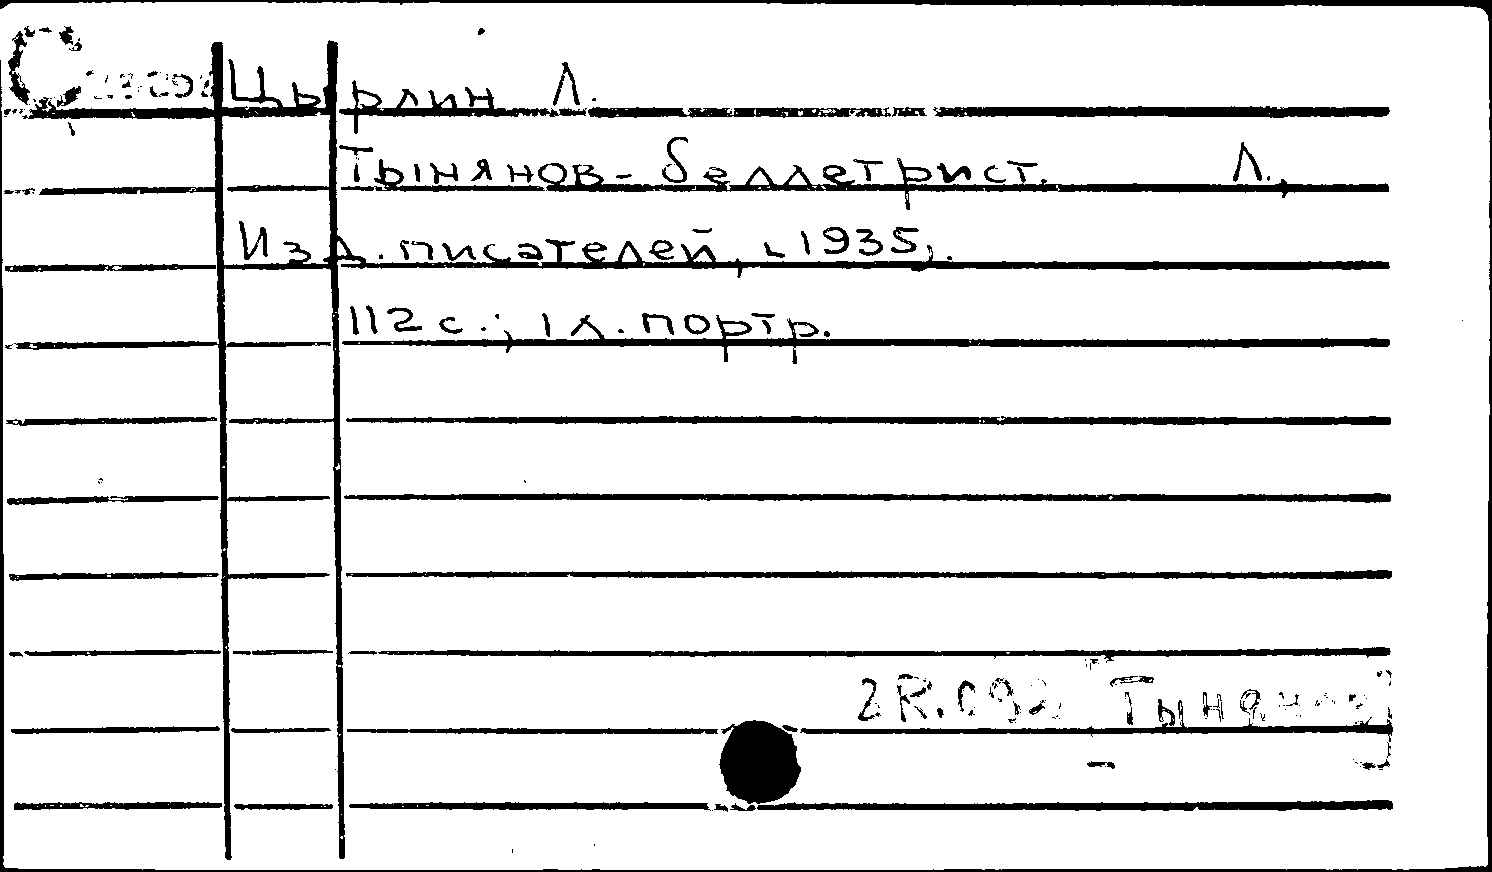 Цырлин Л.
Тынянов-беллетрист. Л.,
Изд. писателей, [1935].
112 с.; 1 л. портр.
2R.092 [Тынянов]